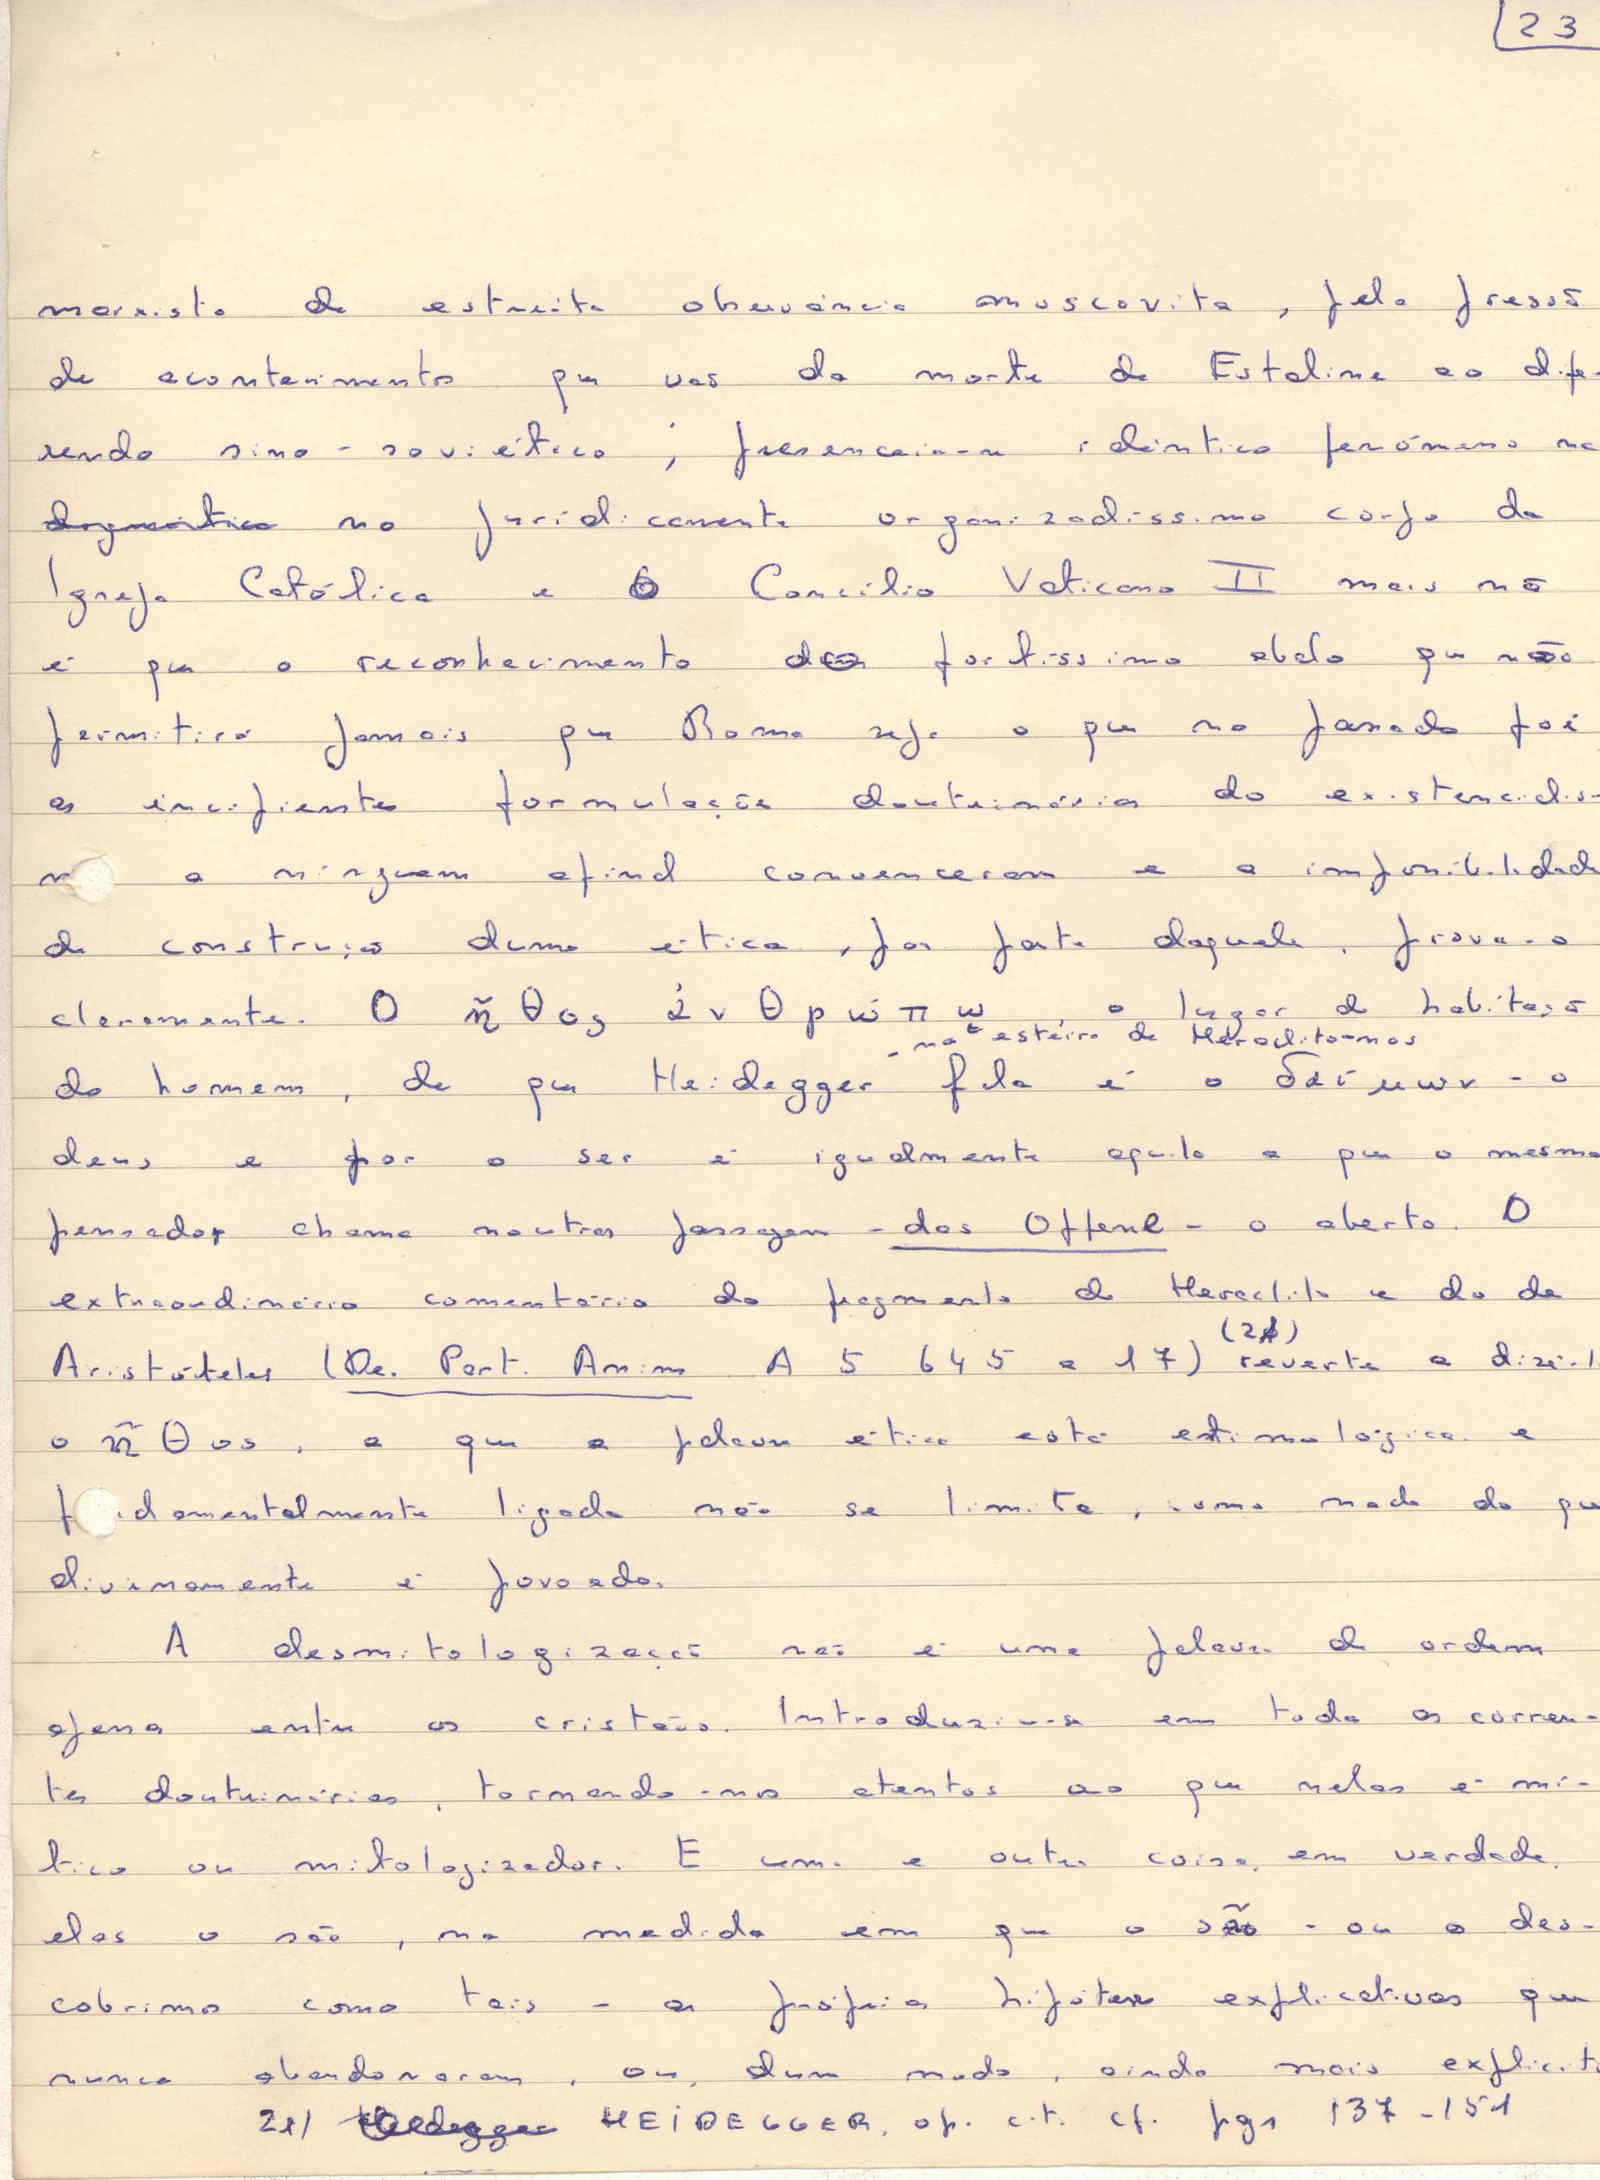 23
marxista de estreita observância moscovita, pela pressã
de acontecimentos que vas da morte de Estaline ao dife-
rendo sino-soviético; presenceia-se idêntico fenómeno
dogmático no juridicamente organizadissimo corpo da
Igreja Católica e o Concílio Vaticano II mais nã
é que o reconhecimento do fortissimo abalo que não
permitirá jamais que Roma seja o que no passado foi
as incipientes formulações doutrinárias do existencialis-
a ninguem afinal convenceram e a impossibilidade
de construção duma ética, por parte daquele, prova-o
claramente. O ἦθος ἀνθρώπω, o lugar de habitaçã
- na esteira de Heraclito-nos
do homem, de que Heidegger fala é o δαίμων - o
deus e por o ser é igualmente aquilo a que o mesmo
pensador chama noutras passagens - das Offene - o aberto. O
extraordinário comentário do fragmento de Heraclito e do de
(21)
Aristóteles (De. Part. Anim A 5 645 a 17) reverte a dizê-l
o ἦθος, a que a palavra ética está etimológica e
damentalmente ligada não se limita, como nada do que
divinamente é povoado.
A desmitologizaçã não é uma palavra de ordem
apenas entre os cristãos. Introduziu-se em todas as corren-
tes doutrinárias, tornando-nos atentos ao que nelas é mí-
tico ou mitologizador. E uma e outra coisa, em verdade,
elas o são, na medida em que o são - ou o des-
cobrimos como tais - as próprias hipóteses explicativas que
nunca abandonaram, ou, dum modo, ainda mais explicit
21) Heidegger HEIDEGGER, op. cit. cf. pgs 137-151